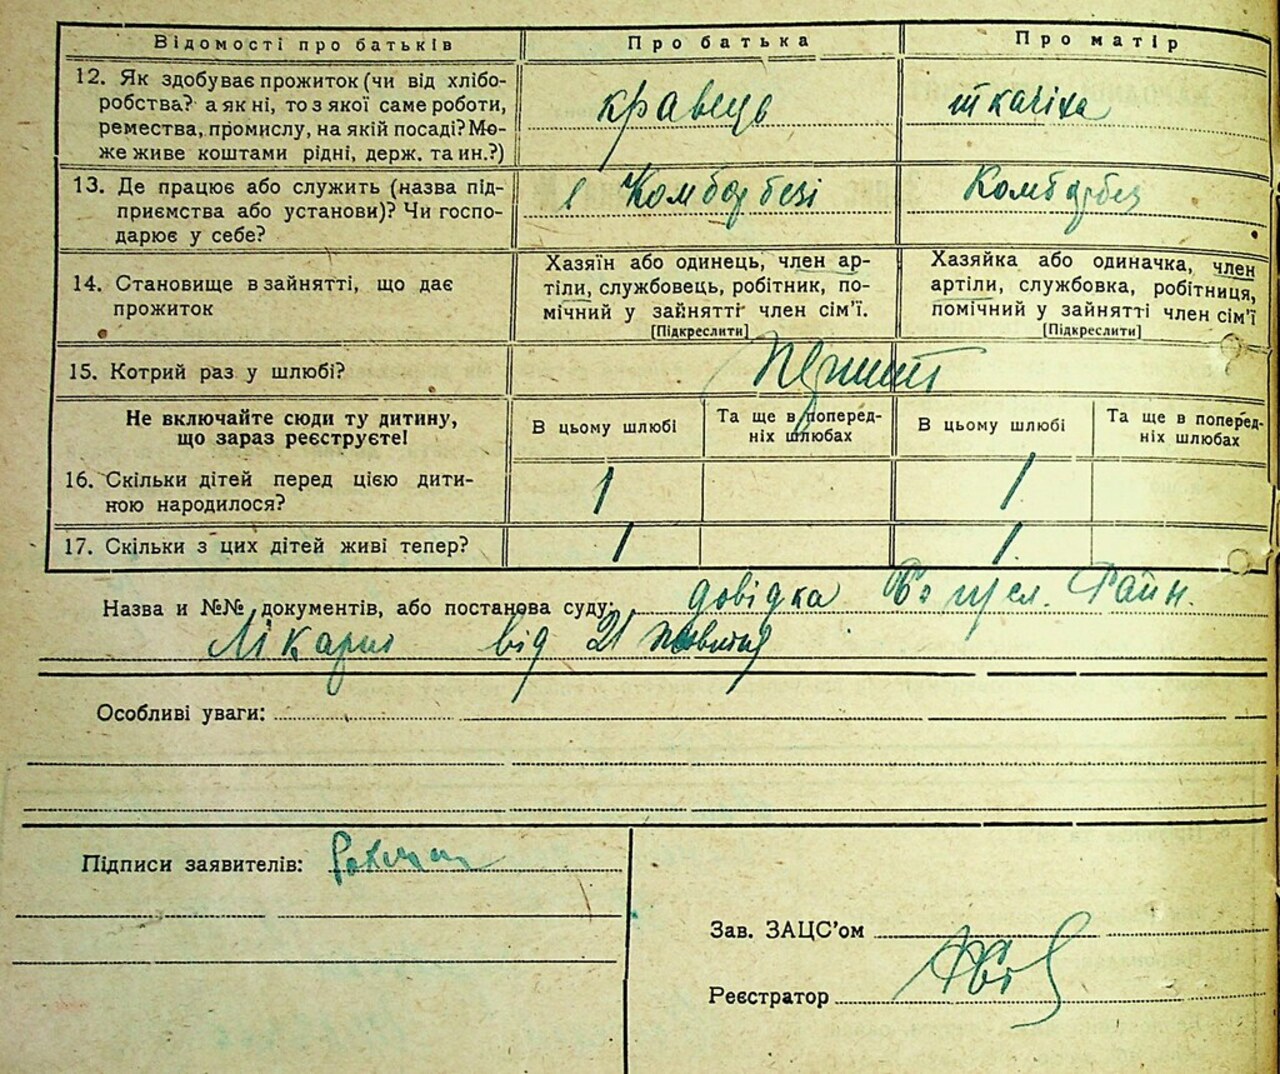 Відомості про батьків
Про батька
Про матір
12. Як здобуває прожиток (чи від хлібо-
робства? а як ні, то з якої саме роботи,
ремества, промислу, на якій посаді? Мо-
же живе коштами рідні, держ. та ин.?)
кравець
ткачіха
13. Де працює або служить (назва під-
приємства або установи)? Чи госпо-
дарює у себе?
Комборбезі
Комборбез
14. Становище в зайнятті, що дає
прожиток
Хазяїн або одинець, член ар-
тіли, службовець, робітник, по-
мічний у зайнятті член сім'ї.
[Підкреслити]
Хазяйка або одиначка, член
артіли, службовка, робітниця,
помічний у зайнятті член сім'ї
[Підкреслити]
15. Котрий раз у шлюбі?
Не включайте сюди ту дитину,
що зараз реєструєте!
В цьому шлюбі
Та ще в поперед-
ніх шлюбах
В цьому шлюбі
Та ще в поперед-
ніх шлюбах
16. Скільки дітей перед цією дити-
ною народилося?
1
1
17. Скільки з цих дітей живі тепер?
1
1.
Назва и №№ документів, або постанова суду: довідка
Лікарні від 21 жовтня
Особливі уваги:
Підписи заявителів:
Зав. ЗАЦС'ом
Реєстратор